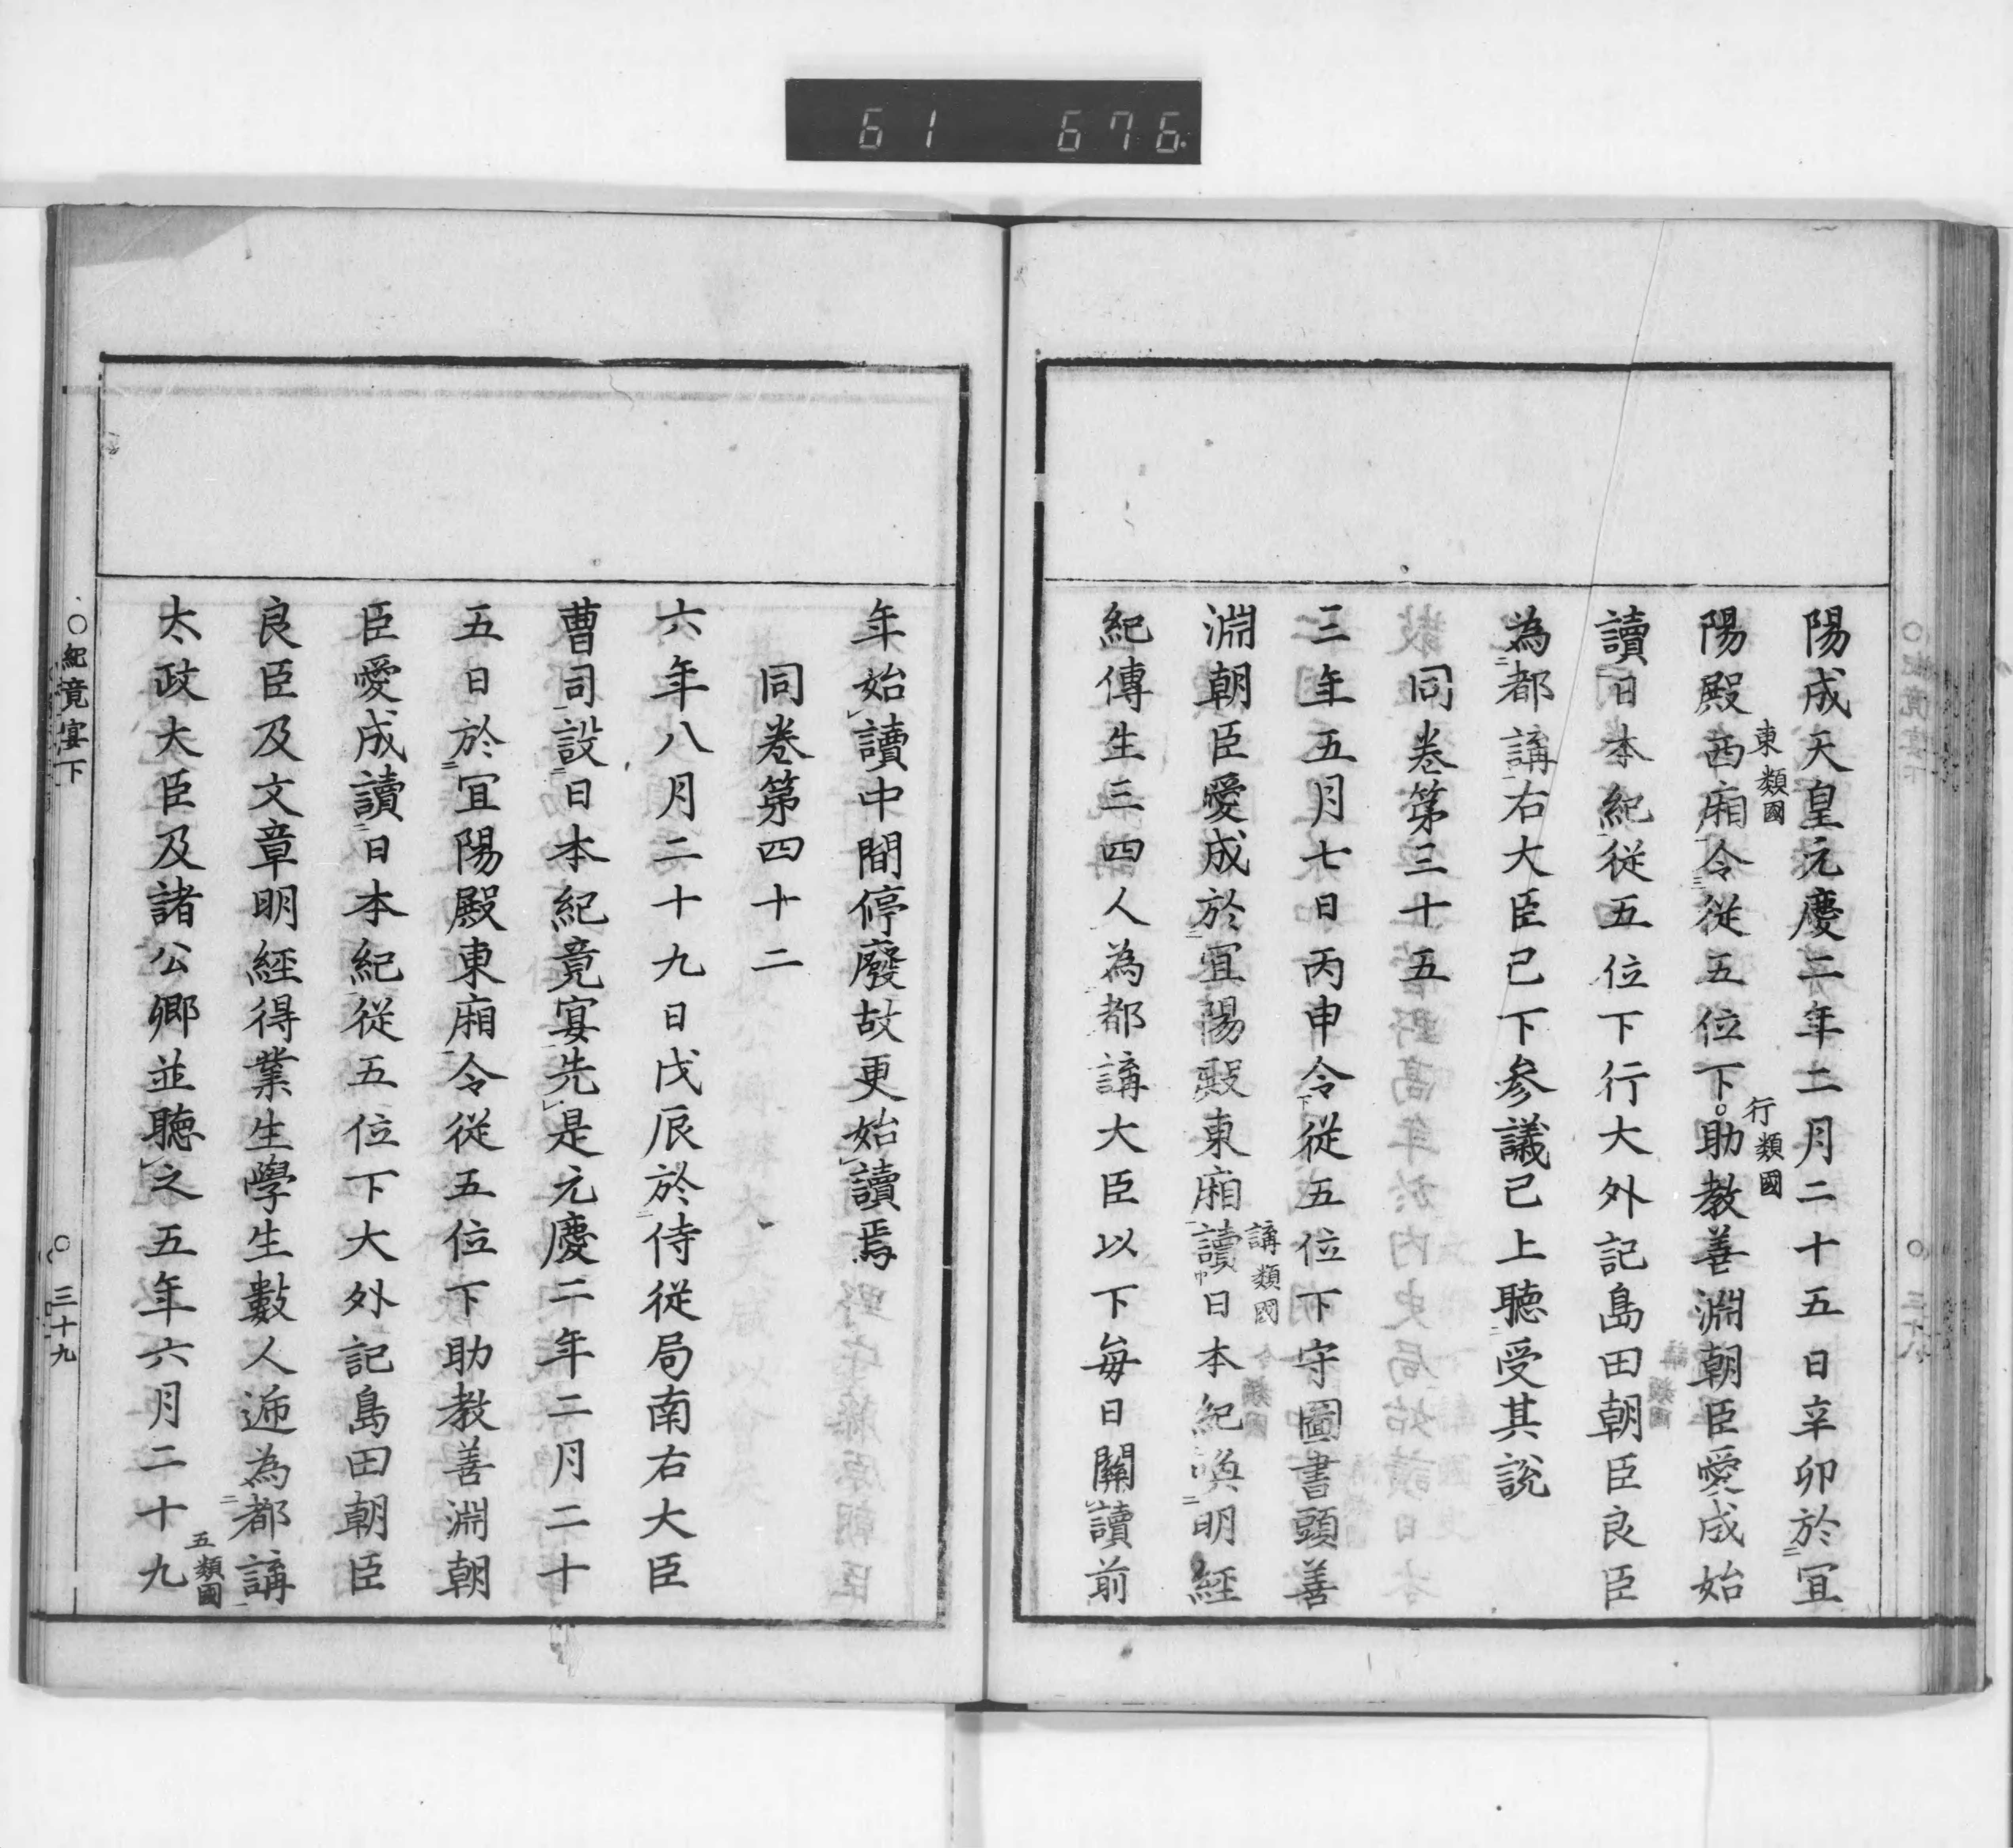 61 676
陽成天皇元慶二年二月二十五日辛卯於宜
陽殿西廂令從五位下助教善淵朝臣愛成始
東類國
行類國
讀日本紀從五位下行大外記島田朝臣良臣
為都講右大臣已下參議已上聽受其說
同卷第三十五
三年五月七日丙申令從五位下守圖書頭善
淵朝臣愛成於宜陽殿東廂讀日本紀喚明經
講類國
紀傳生三四人為都講大臣以下每日關讀前
年始讀中間停廢故更始讀焉
同卷第四十二
六年八月二十九日戊辰於侍從局南右大臣
曹司設日本紀竟宴先是元慶二年二月二十
五日於宜陽殿東廂令從五位下助教善淵朝
臣愛成讀日本紀從五位下大外記島田朝臣
良臣及文章明經得業生學生數人遞為都講
太政大臣及諸公卿並聽之五年六月二十九
五類國
○紀竟宴下
○三十九